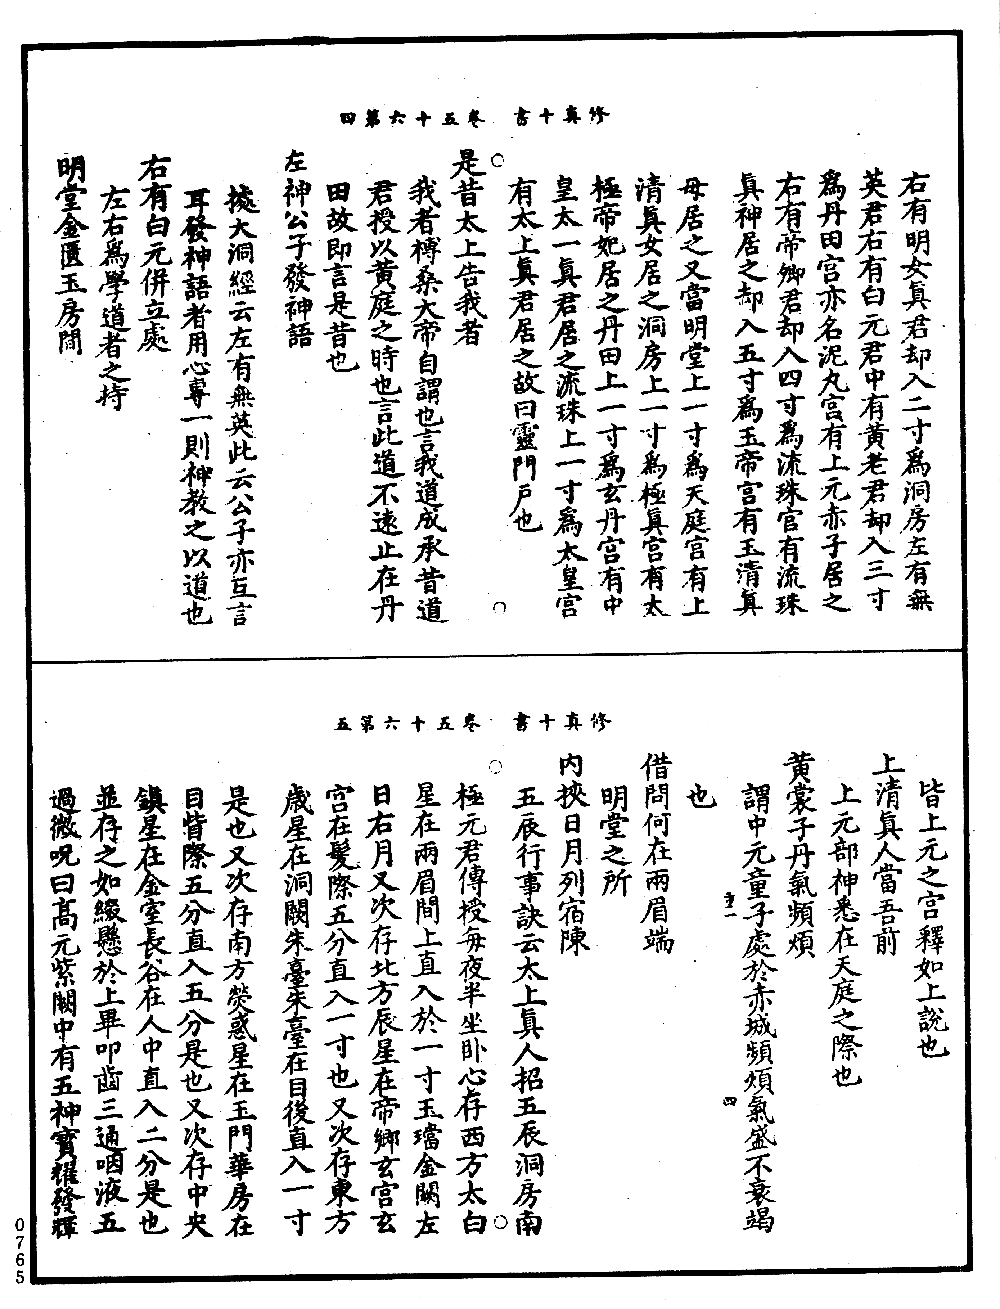 修真十書　卷五十六第四
右有明女真君却入二寸爲洞房左有無
英君右有白元君中有黃老君却入三寸
爲丹田宮亦名泥丸宮有上元赤子居之
右有帝卿君却入四寸爲流珠宮有流珠
真神居之却入五寸爲玉帝宮有玉清真
母居之又當明堂上一寸爲天庭宮有上
清真女居之洞房上一寸爲極真宮有太
極帝妃居之丹田上一寸爲玄丹宮有中
皇太一真君居之流珠上一寸爲太皇宮
有太上真君居之故曰靈門戶也
是昔太上告我者
我者榑桑大帝自謂也言我道成承昔道
君授以黃庭之時也言此道不遠止在丹
田故即言是昔也
左神公子發神語
據大洞經云左有無英此云公子亦互言
耳發神語者用心專一則神教之以道也
右有白元併立處
左右爲學道者之持
明堂金匱玉房間
修真十書　卷五十六第五
皆上元之宮釋如上說也
上清真人當吾前
上元部神悉在天庭之際也
黃裳子丹氣頻煩
謂中元童子處於赤城頻煩氣盛不衰竭
也
借問何在兩眉端
明堂之所
內挾日月列宿陳
五辰行事訣云太上真人招五辰洞房南
極元君傳授每夜半坐卧心存西方太白
星在兩眉間上直入於一寸玉璫金闕左
日右月又次存北方辰星在帝鄉玄宮玄
宮在髮際五分直入一寸也又次存東方
歲星在洞闕朱臺朱臺在目後直入一寸
是也又次存南方熒惑星在玉門華房在
目眥際五分直入五分是也又次存中央
鎮星在金室長谷在人中直入二分是也
並存之如綴懸於上畢叩齒三通咽液五
過微呪曰高元紫闕中有五神寶耀發輝
四
0765